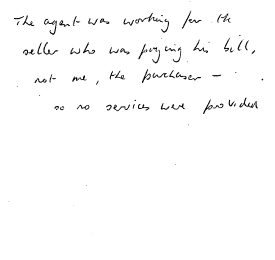 The agent was working for the
seller who was paying his bill,
not me, the purchaser -
so no services were provided